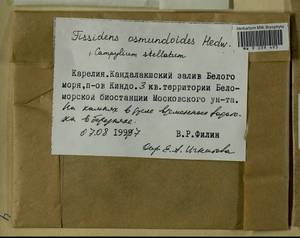 Fissidens osmundoides Hedw.
+ Campylium stellatum
Карелия. Кандалакшский залив Белого
моря, п-ов Киндо. 3 кв. территории Бело-
морской биостанции Московского ун-та.
На камнях в русле временного водото-
ка в березняке.
07.08 1997
В.Р.Филин
Опр. Е.А. Игнатова